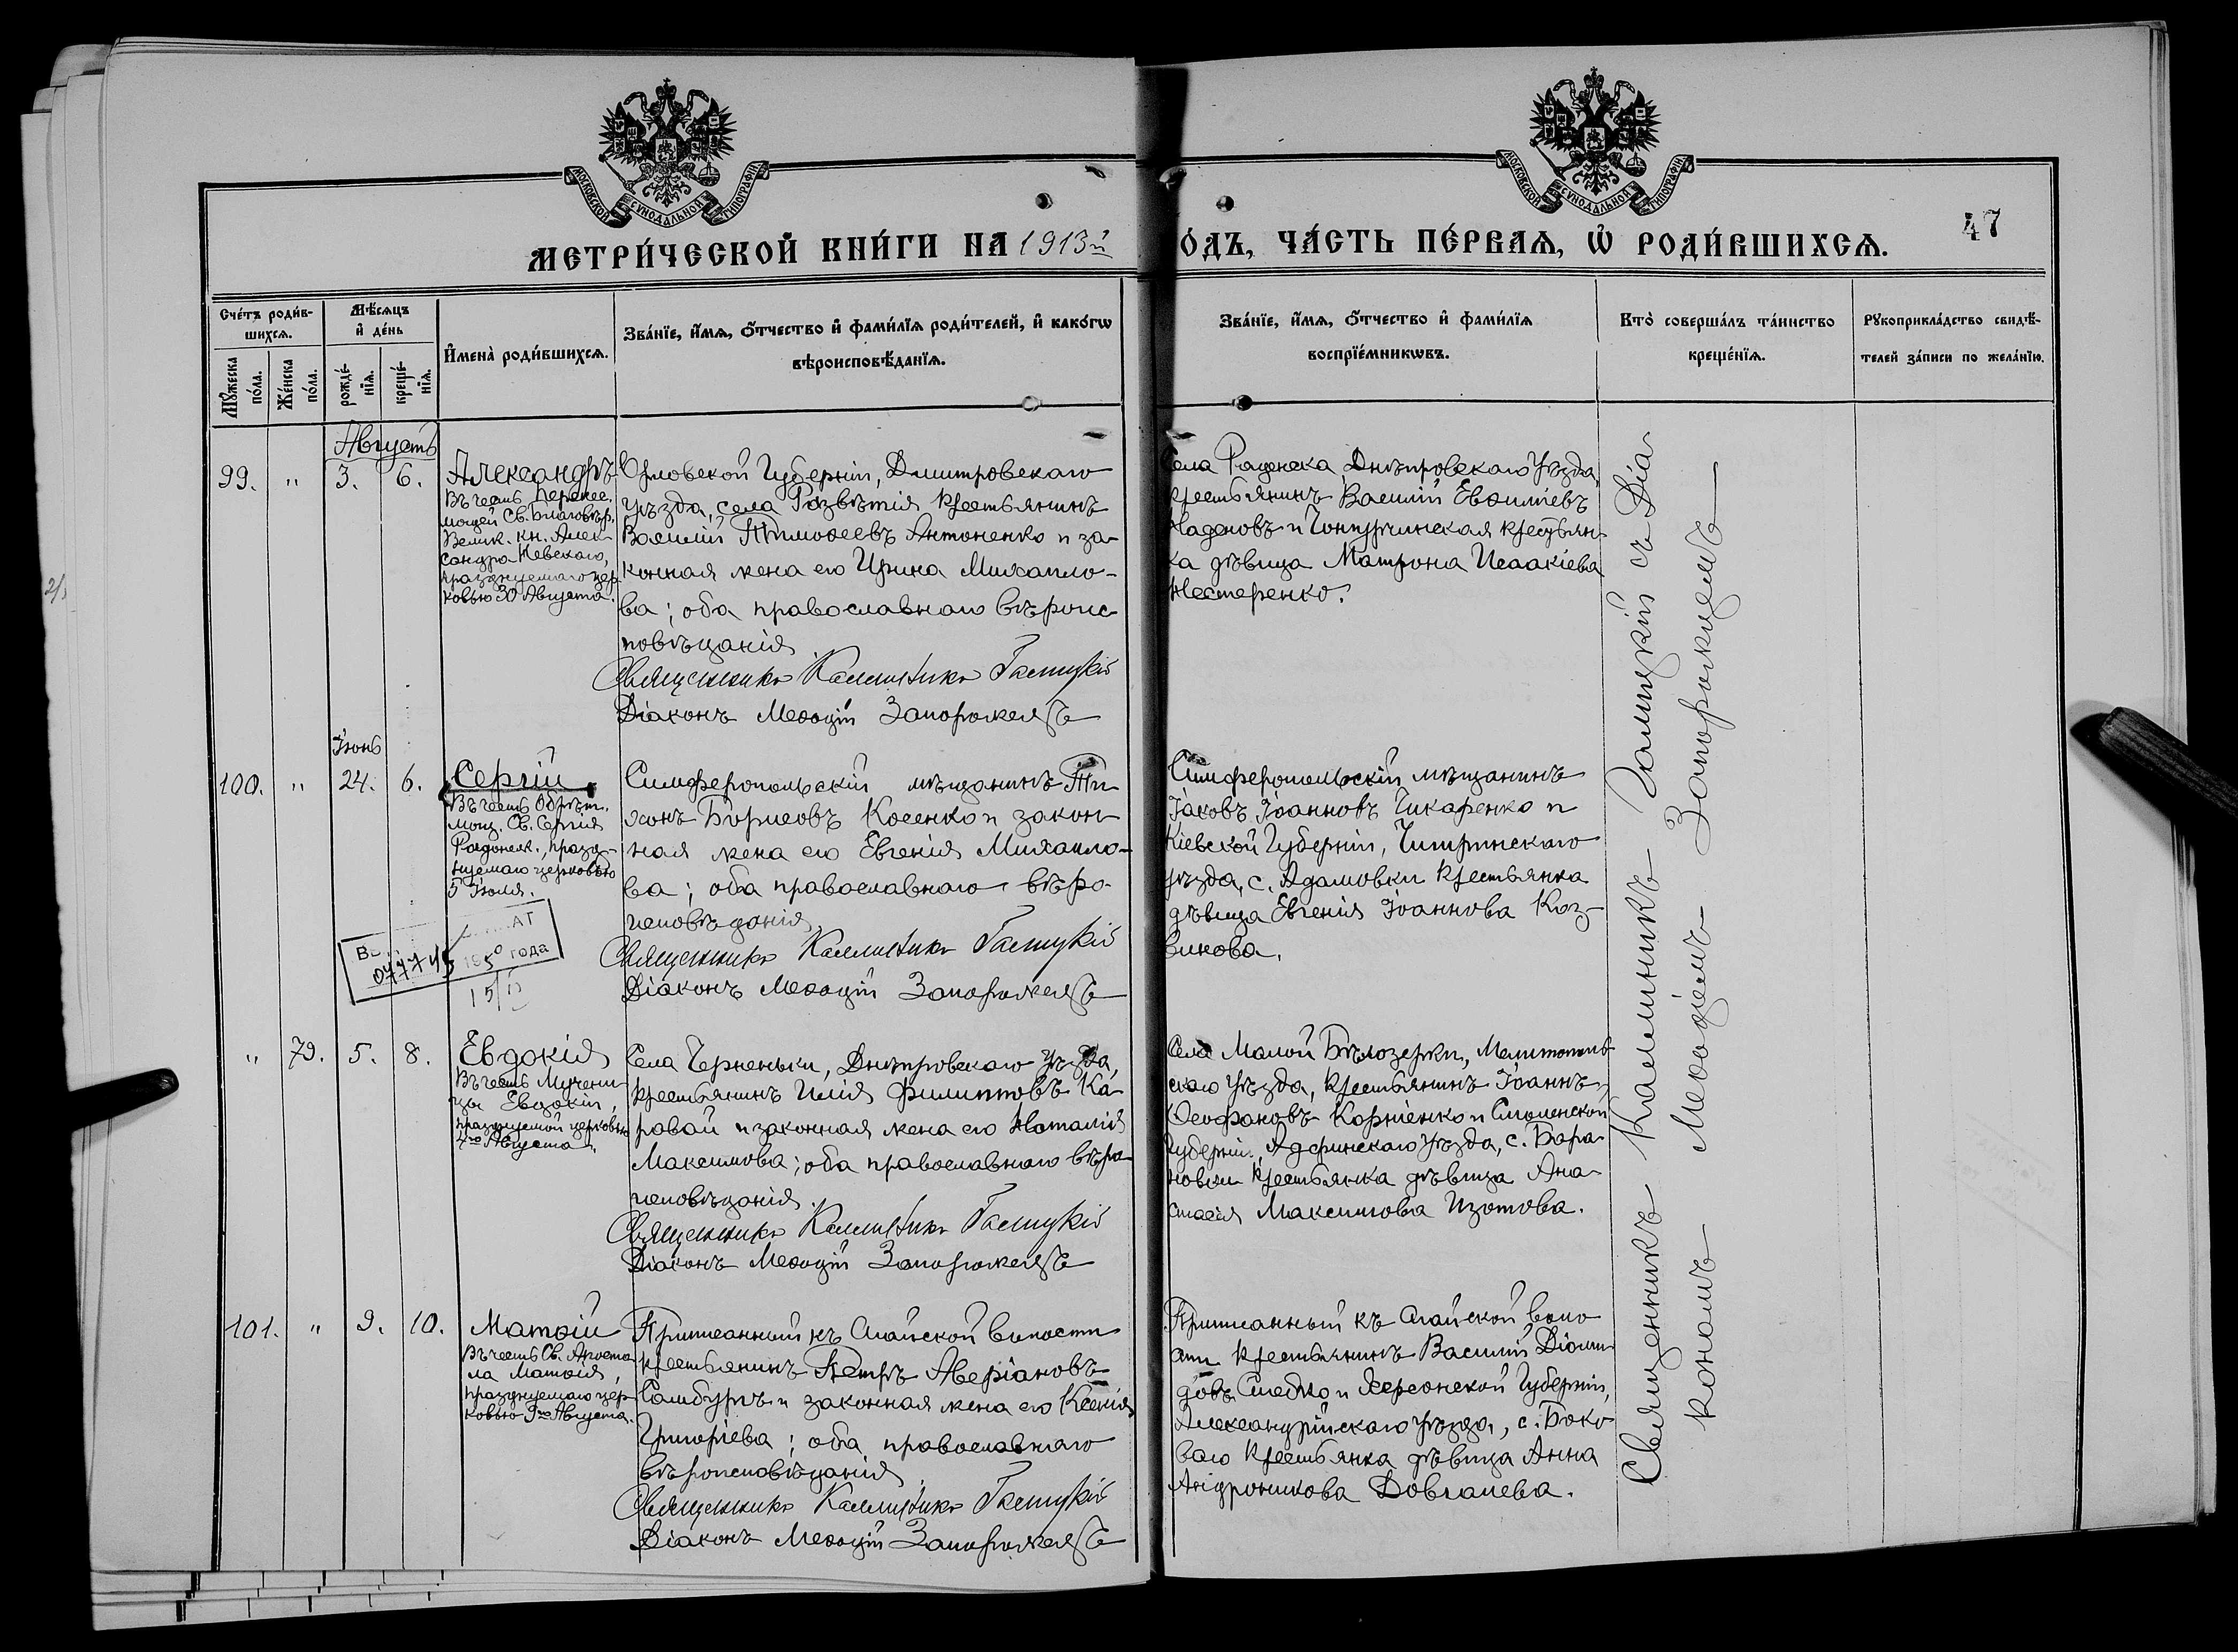 МОСКОВСКОЙ СУНОДАЛЬНОЙ ТИПОГРАФІИ
МОСКОВСКОЙ СУНОДАЛЬНОЙ ТИПОГРАФІИ
МЕТРИ́ЧЕСКОЙ КНИ́ГИ НА 1913й
О́ДЪ, ЧА́СТЬ ПЕ́РВАѦ, Ѿ РОДИ́ВШИХСѦ.
47
Сче́тъ роди́в-
шихсѧ.
Мѣ́сѧцъ
и҆ де́нь
Мꙋ́жеска по́ла.
Же́нска по́ла.
рожде́-нїѧ.
креще́-нїѧ.
И҆мена̀ роди́вшихсѧ.
Зва́нїе, и҆́мѧ, ѻ҆́тчество и҆ фами́лїѧ роди́телей, и҆ како́гѡ
вѣроисповѣ́данїѧ.
Зва́нїе, и҆́мѧ, ѻ҆́тчество и҆ фами́лїѧ
воспрїе́мникѡвъ.
Кто̀ соверша́лъ та́инство
креще́нїѧ.
Рꙋкоприкла́дство свидѣ́-
телей за́писи по жела́нїю.
Августъ
99. " 3. 6.
Александръ
Въ честь перенес.
мощей Св. Благовѣр.
Велик. Кн. Алек-
сандра Невскаго,
празднуемаго цер-
ковью 30 Августа.
Орловской Губерніи, Дмитровскаго
уѣзда, села Развѣтія крестьянинъ
Василій Тимоѳеевъ Антоненко и за-
конная жена его Ирина Михаило-
ва; оба православнаго вѣроис-
повѣданія
Священникъ Каллиникъ Галицкій
Діаконъ Меѳодій Запорожецъ
Села Раденска Днѣпровскаго уѣзда,
крестьянинъ Василій Евѳиміевъ
и крестьян-
ка дѣвица Матрона Исаакіева
Нестеренко.
Іюнь
100. " 24. 6.
Сергій
Въ честь Обрѣт.
мощ. Св. Сергія
Радонеж., празд-
нуемаго церковью
5 Іюля.
Симферопольскій мѣщанинъ Ти-
хонъ Борисовъ Косенко и закон-
ная жена его Евгенія Михаило-
ва; оба православнаго вѣро-
исповѣданія
Священникъ Каллиникъ Галицкій
Діаконъ Меѳодій Запорожецъ
Симферопольскій мѣщанинъ
Іаковъ Іоанновъ Чикаренко и
Кіевской Губерніи, Чигринскаго
уѣзда, с. Адамовки крестьянка
дѣвица Евгенія Іоаннова Коз-
викова.
077745 1950 года
15/
" 79. 5. 8.
Евдокія
Въ честь Мучени-
цы Евдокіи,
празднуемой церковью
4го Августа.
Села Черненьки, Днѣпровскаго уѣзда,
крестьянинъ Илія Филипповъ Ка-
равай и законная жена его Наталія
Максимова; оба православнаго вѣро-
исповѣданія.
Священникъ Каллиникъ Галицкій
Діаконъ Меѳодій Запорожецъ
Села Малой Бѣлозерки, Мелитополь-
скаго уѣзда, крестьянинъ Іоаннъ
Ѳеофановъ Корніенко и Смоленской
Губерніи, уѣзда, с. Бара-
новки крестьянка дѣвица Ана-
стасія Максимова Изотова.
101. " 9. 10.
Матѳій
Въ честь Св. Апосто-
ла Матѳія,
празднуемаго цер-
ковью 9го Августа.
Приписанный къ Агайской волости
крестьянинъ Петръ Аверіановъ
Самбуръ и законная жена его Ксенія
Григоріева; оба православнаго
вѣроисповѣданія
Священникъ Каллиникъ Галицкій
Діаконъ Меѳодій Запорожецъ
Приписанный къ Агайской воло-
сти крестьянинъ Василій Діоми-
довъ и Херсонской Губерніи,
Александрійскаго уѣзда, с. Боко-
ваго крестьянка дѣвица Анна
Андроникова Довгалева.
Священникъ Каллиникъ Галицкій съ Діа-
кономъ Меѳодіемъ Запорожцемъ